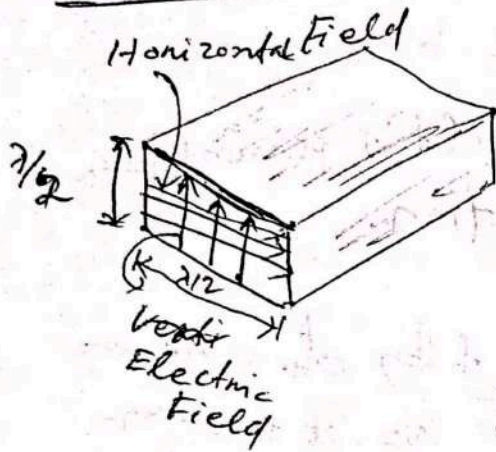 Horizontal Field
λ/2
λ/2
Electric
Field